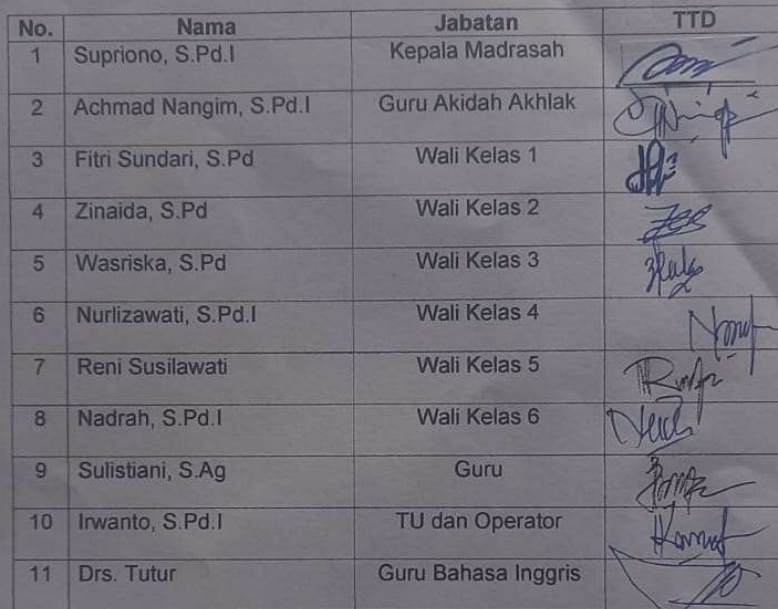 No. Nama Jabatan TTD
1 Supriono, S.Pd.I Kepala Madrasah
2 Achmad Nangim, S.Pd.I Guru Akidah Akhlak
3 Fitri Sundari, S.Pd Wali Kelas 1
4 Zinaida, S.Pd Wali Kelas 2
5 Wasriska, S.Pd Wali Kelas 3
6 Nurlizawati, S.Pd.I Wali Kelas 4
7 Reni Susilawati Wali Kelas 5
8 Nadrah, S.Pd.I Wali Kelas 6
9 Sulistiani, S.Ag Guru
10 Irwanto, S.Pd.I TU dan Operator
11 Drs. Tutur Guru Bahasa Inggris